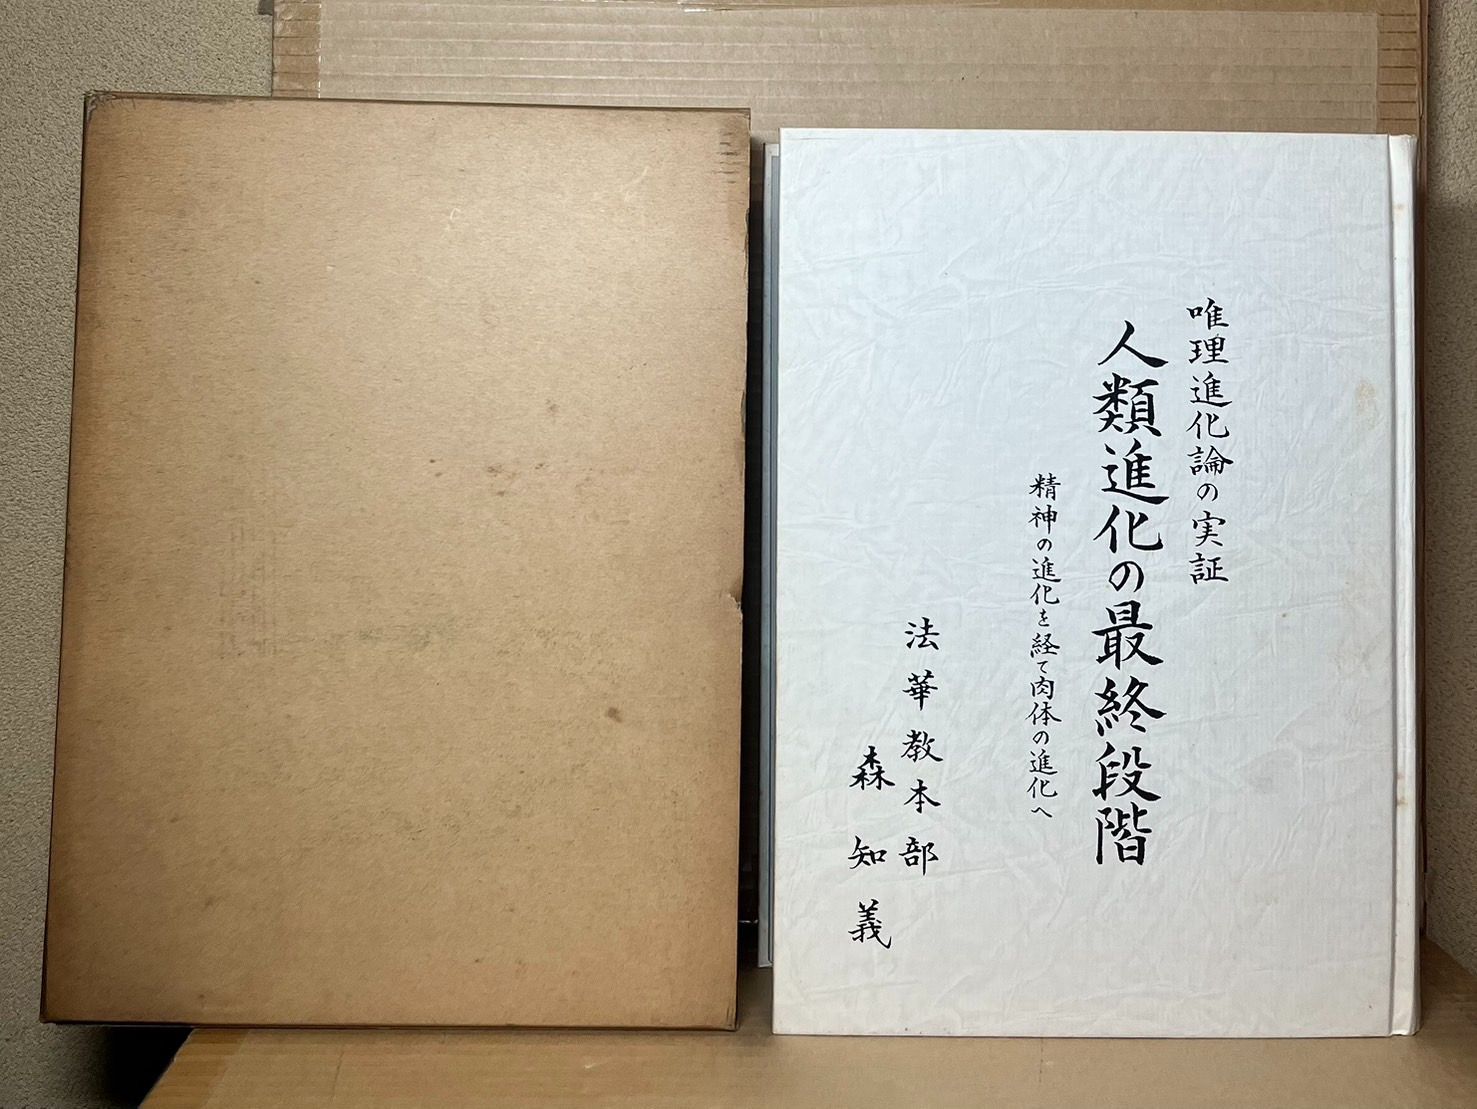 唯理進化論の実証
人類進化の最終段階
精神の進化を経て肉体の進化へ
法華教本部
森知義